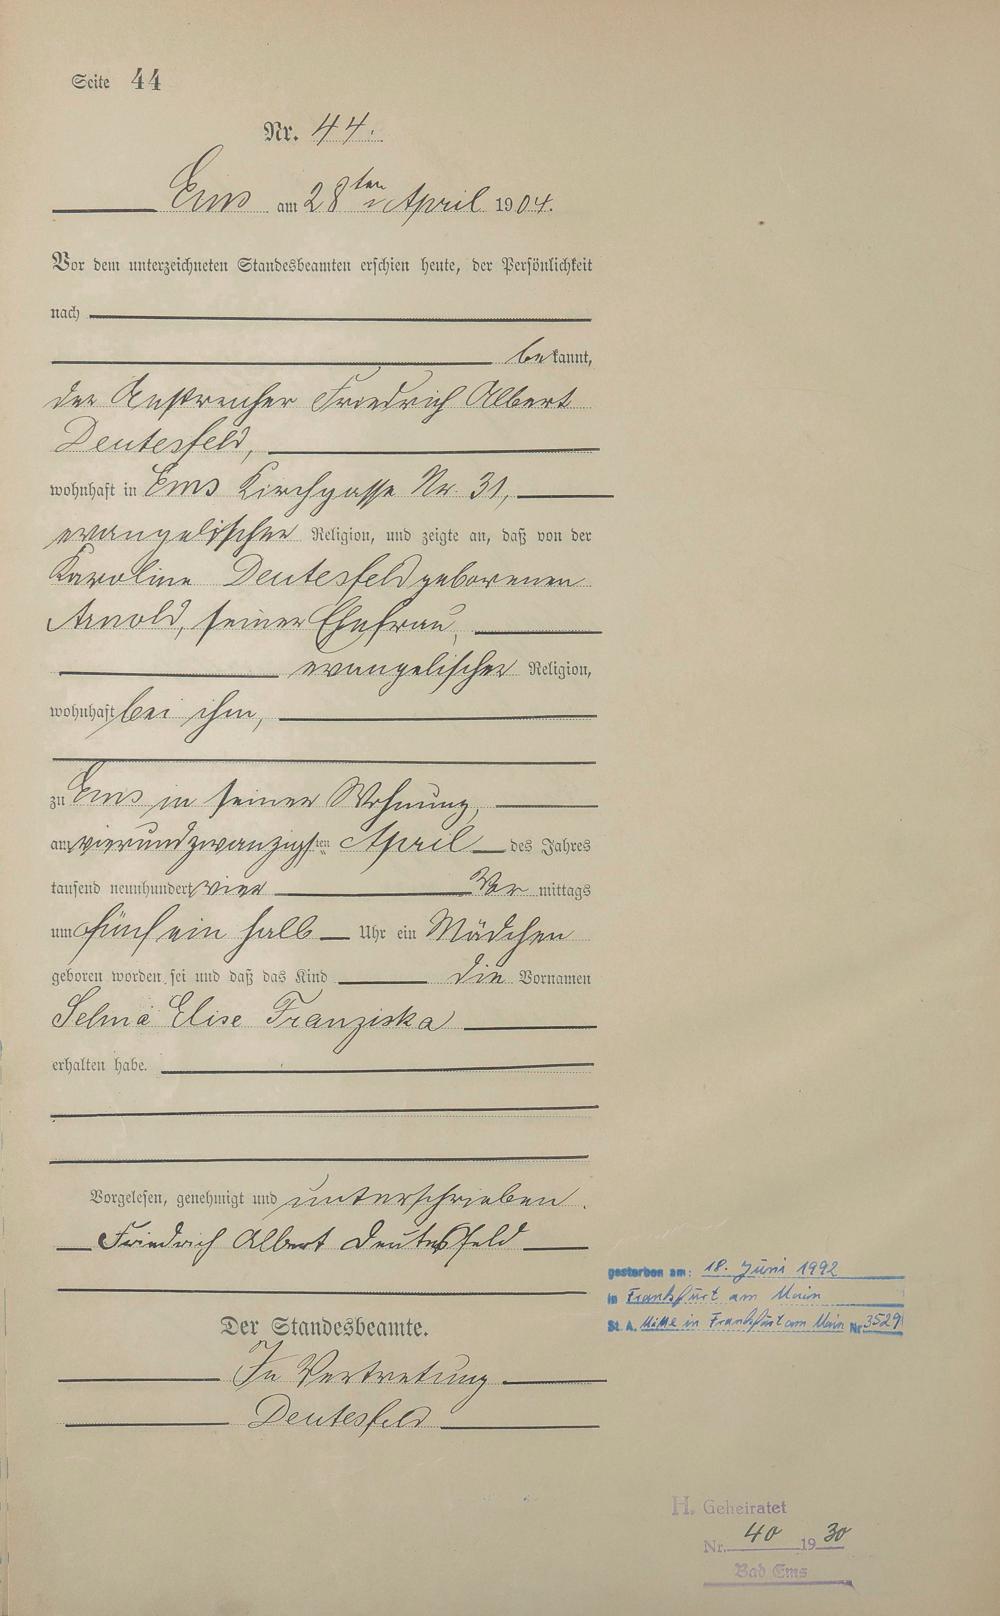 Seite 44
Nr. 44.
Ems am 28ten April 1904.
Vor dem unterzeichneten Standesbeamten erschien heute, der Persönlichkeit
nach
bekannt,
der Anstreicher Friedrich Albert
Deutesfeld,
wohnhaft in Ems Kirchgasse Nr. 31,
evangelischer Religion, und zeigte an, daß von der
Karoline Deutesfeld geborenen
Arnold, seiner Ehefrau,
evangelischer Religion,
wohnhaft bei ihm,
zu Ems in seiner Wohnung,
am vierundzwanzigsten April des Jahres
tausend neunhundert vier Vor mittags
um fünf ein halb Uhr ein Mädchen
geboren worden sei und daß das Kind die Vornamen
Selma Elise Franziska
erhalten habe.
Vorgelesen, genehmigt und unterschrieben.
Friedrich Albert Deutesfeld
gestorben am: 18. Juni 1992
in Frankfurt am Main
St. A. Mitte in Frankfurt am Main Nr 3529
Der Standesbeamte.
In Vertretung
Deutesfeld
H. Geheiratet
Nr. 40 1930
Bad Ems